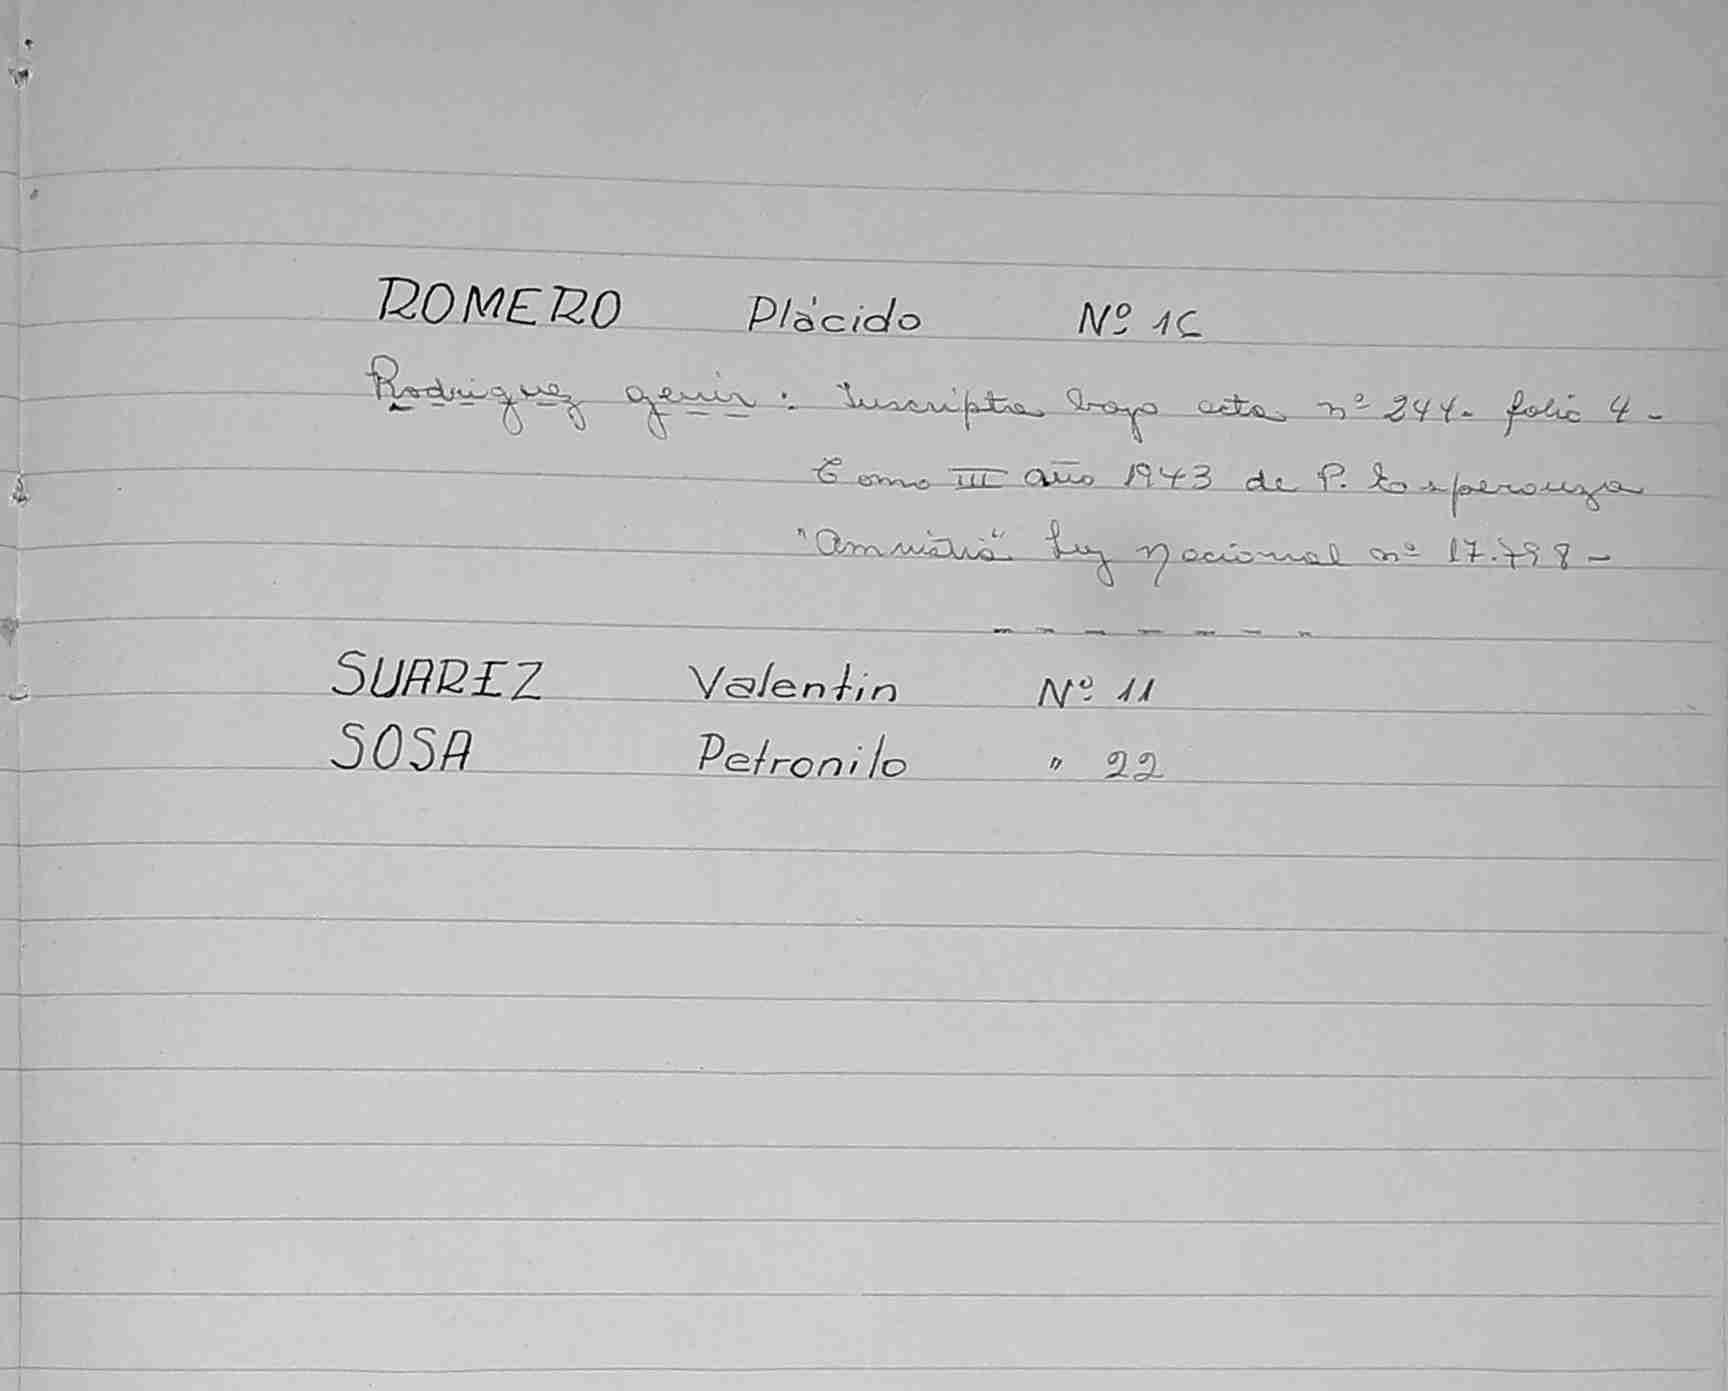 ROMERO Plácido Nº 16
Rodriguez Genir: Inscripta bajo acta nº 244- folio 4-
Tomo III año 1943 de P. Esperanza
"Amnistia" Ley Nacional nº 17.798-
SUAREZ Valentin Nº 11
SOSA Petronilo " 22